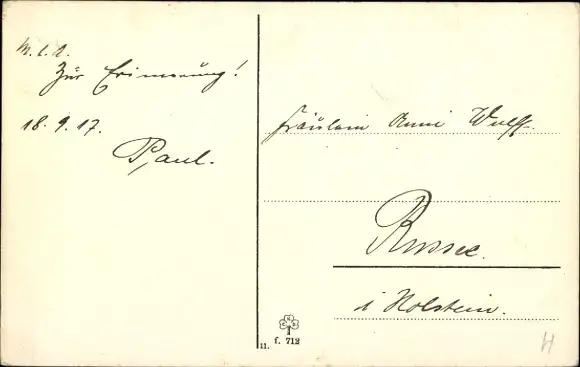 M. l. A.
Zur Erinnerung!
18.9.17.
Paul.
Fräulein Anni Wulff.
Russee.
i Holstein.
11. f. 712
H